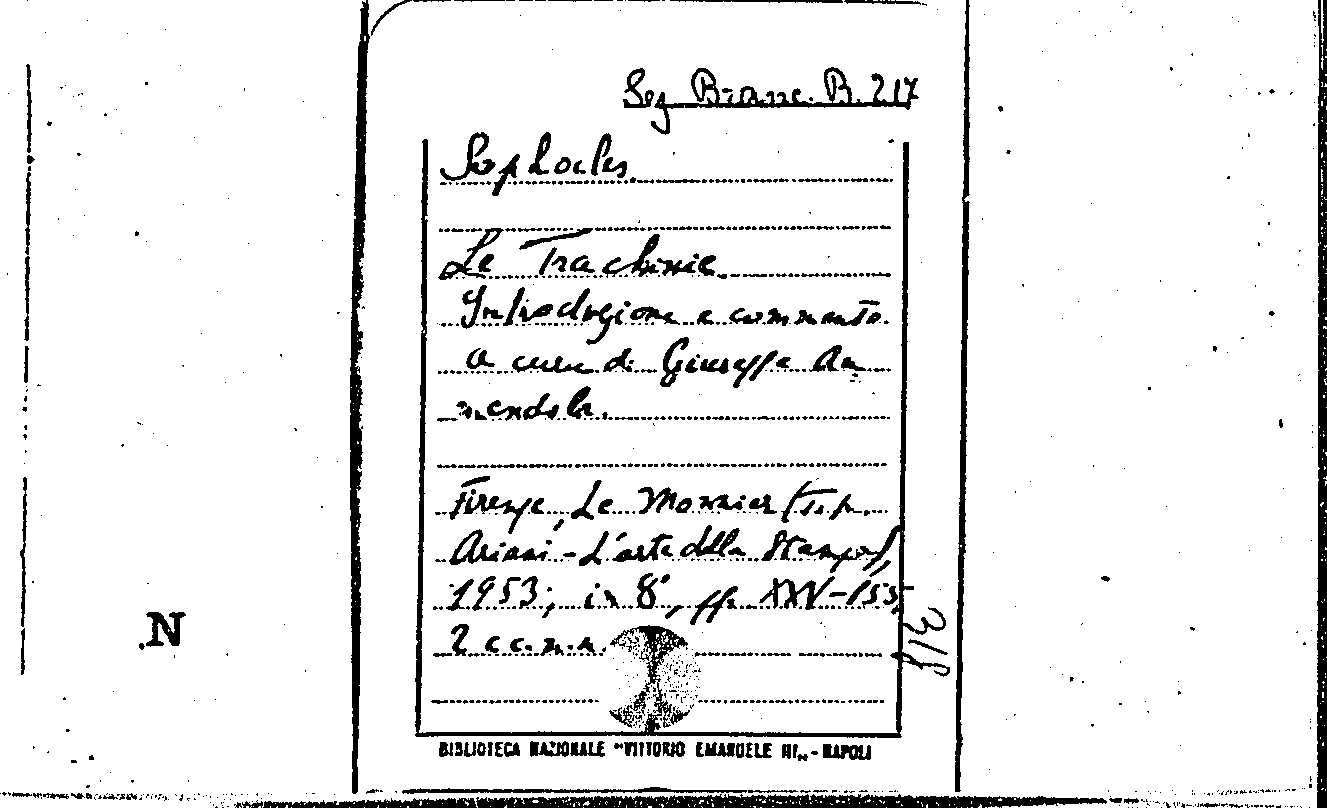 Sez Branc. B. 217
Sophocles.
Le Trachinie.
Introduzione e commento
a cura di Giuseppe Am
mendola.
Firenze, Le Monnier (Tip.
Ariani - L'arte della Stampa),
1953; in 8°, pp. XXV-155,
2 cc.n.n.
318
BIBLIOTECA NAZIONALE "VITTORIO EMANUELE III„ - NAPOLI
.N